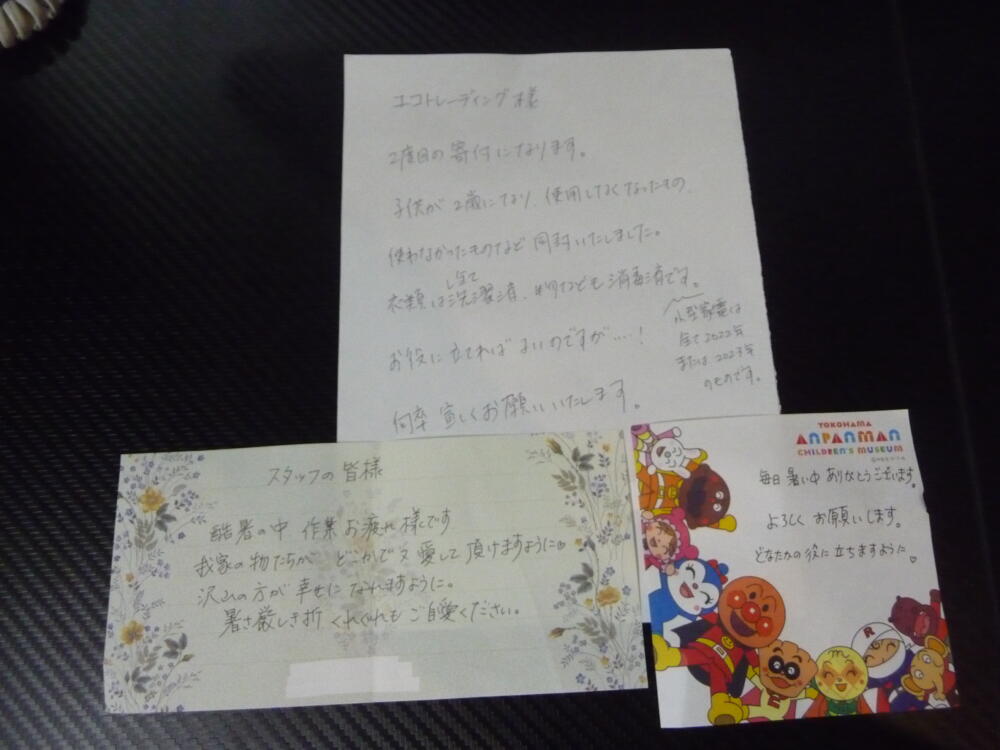 エコトレーディング様
2度目の寄付になります。
子供が2歳になり、使用しなくなったもの、
使わなかったものなど同封いたしました。
全て
衣類は洗濯済、なども消毒済です。
小型家電は
全て2022年
または2023年
のものです。
お役に立てればよいのですが…..!
何卒宜しくお願いいたします。
スタッフの皆様
酷暑の中 作業お疲れ様です
我家の物たちが どこかで又愛して頂けますように♡
沢山の方が幸せになれますように。
暑さ厳しき折 くれぐれもご自愛ください。
YOKOHAMA
ANPANMAN
CHILDREN'S MUSEUM
毎日暑い中ありがとうございます。
よろしくお願いします。
どなたかの役に立ちますように♡